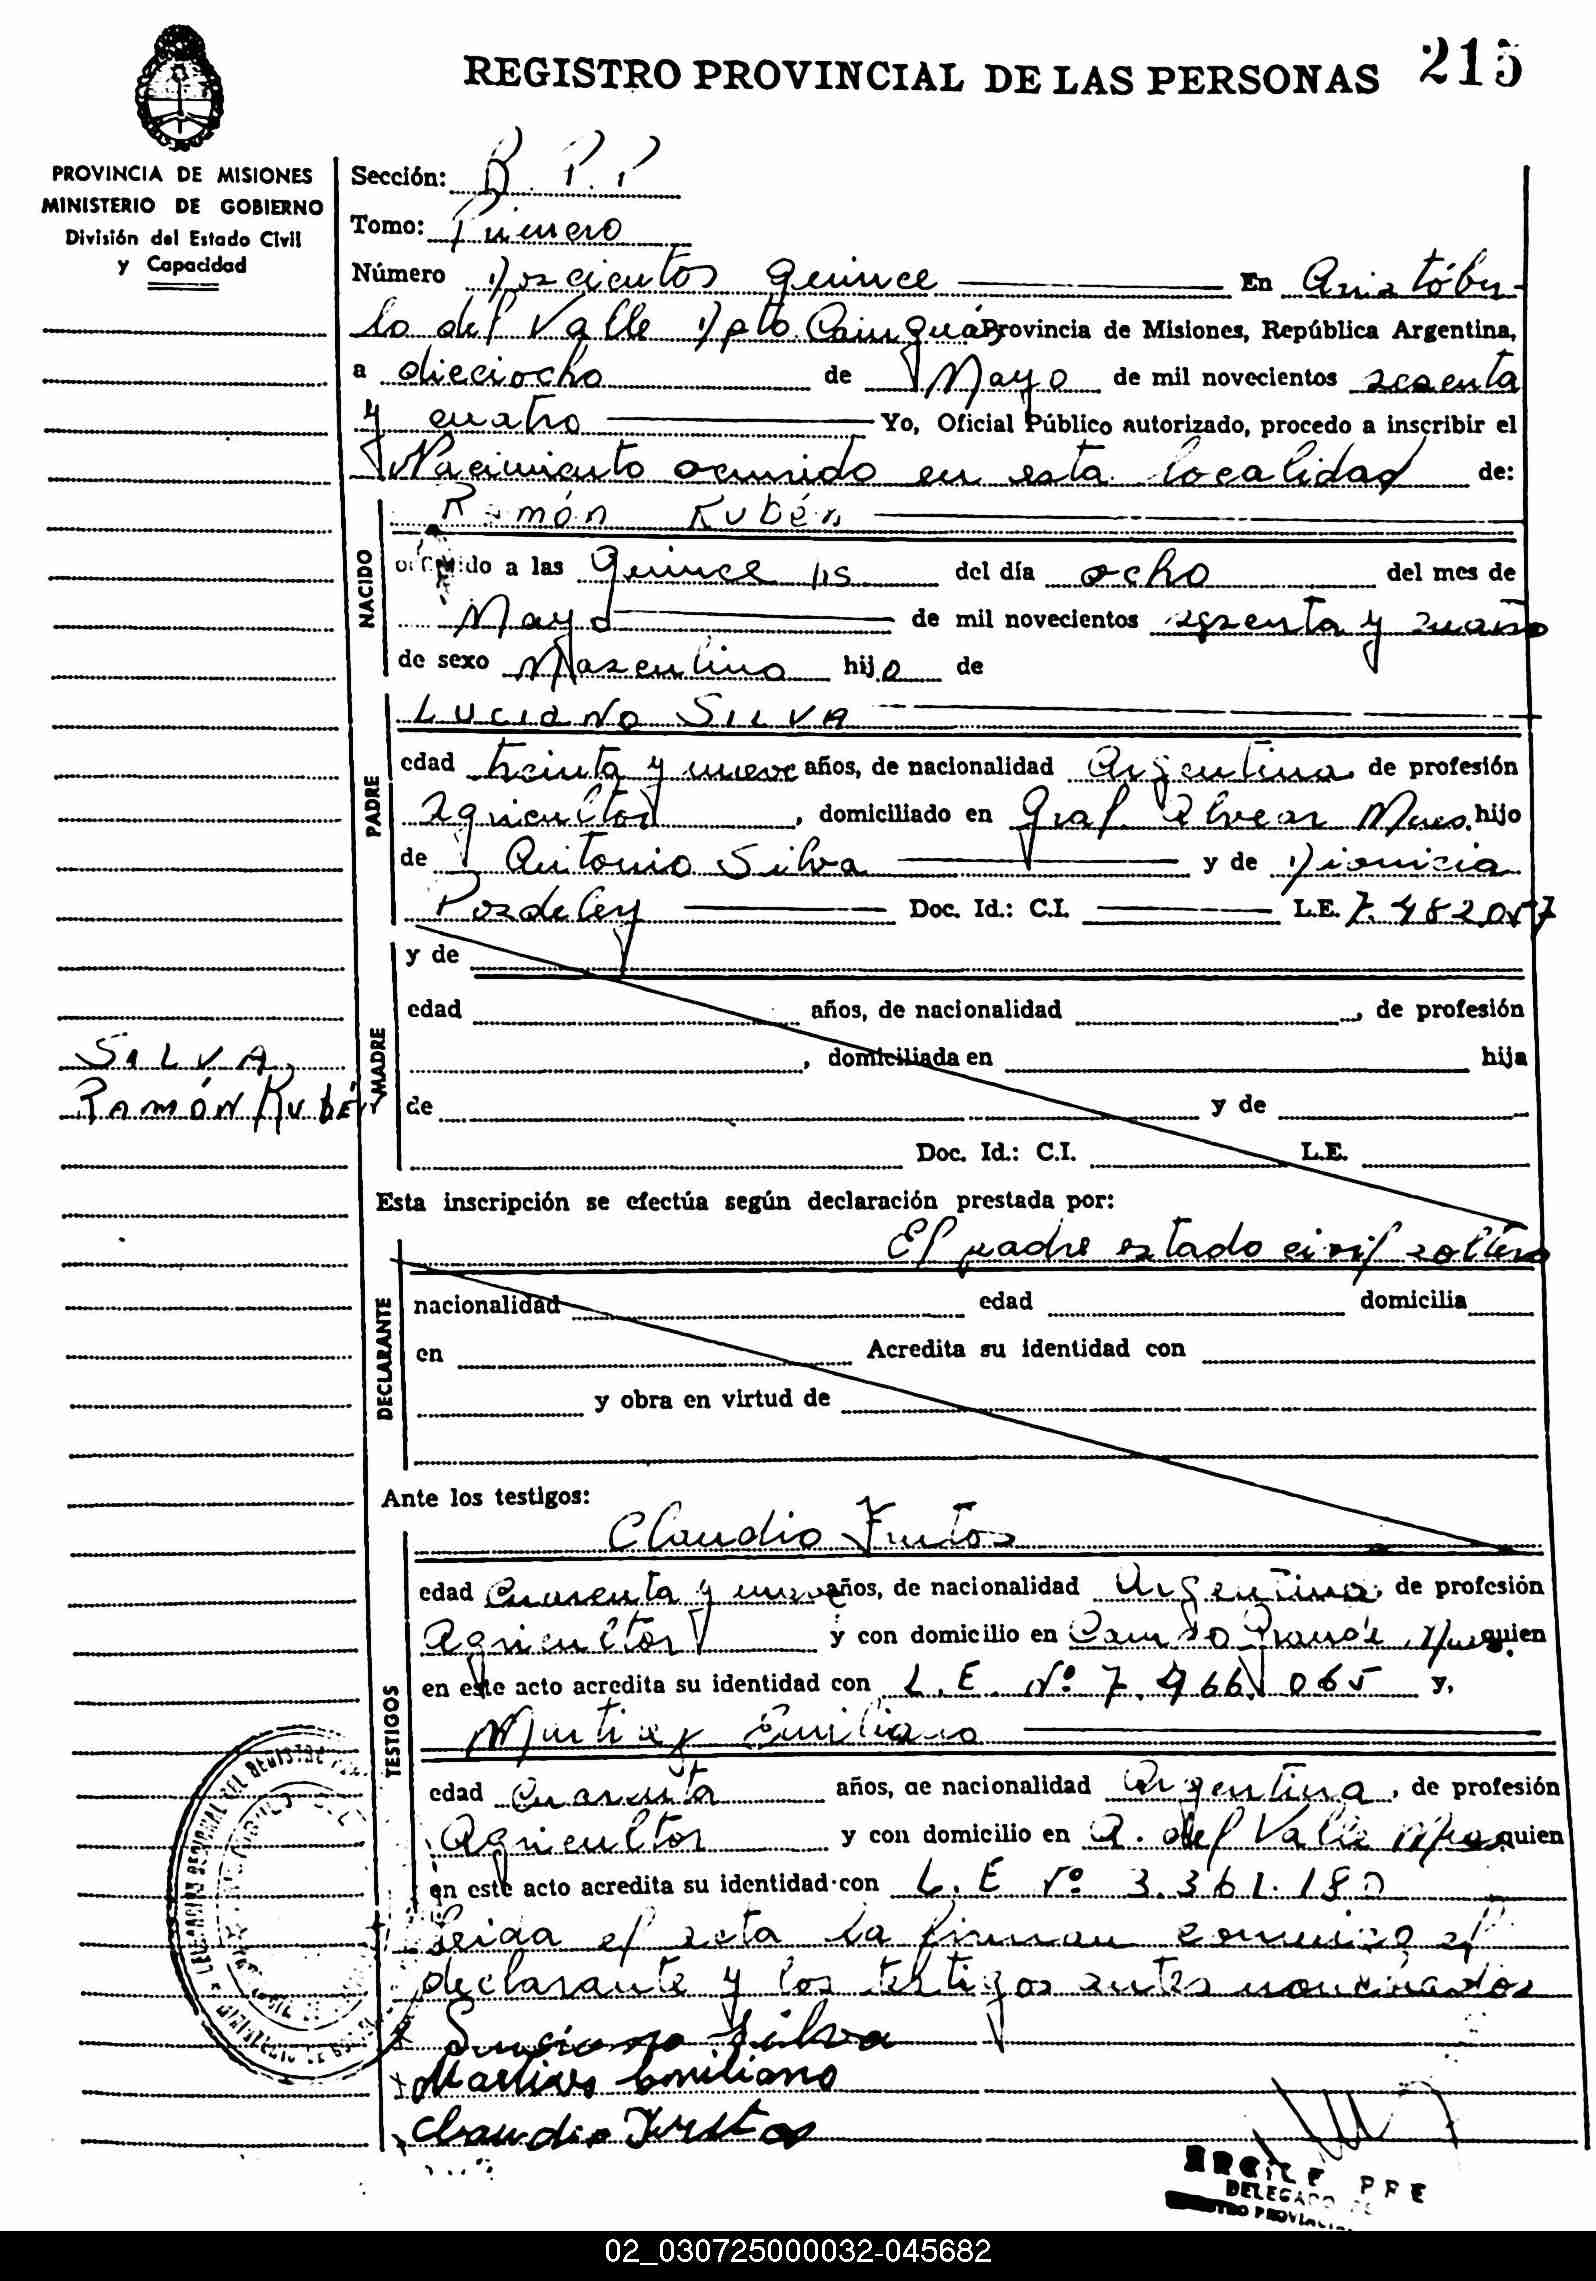 REGISTRO PROVINCIAL DE LAS PERSONAS 215
PROVINCIA DE MISIONES
MINISTERIO DE GOBIERNO
División del Estado Civil
y Capacidad
Sección:
Tomo: Primero
Número Doscientos quince En Aristóbu-
lo del Valle Dpto. Cainguás Provincia de Misiones, República Argentina,
a dieciocho de Mayo de mil novecientos sesenta
y cuatro Yo, Oficial Público autorizado, procedo a inscribir el
Nacimiento ocurrido en esta localidad de:
NACIDO
Ramón Rubén
ocurrido a las Quince hs del día ocho del mes de
Mayo de mil novecientos sesenta y cuatro
de sexo Masculino hijo de
PADRE
Luciano SILVA
edad treinta y nueve años, de nacionalidad Argentina, de profesión
Agricultor, domiciliado en Gral. Alvear Mnes. hijo
de Antonio Silva y de Dionicia
Posdeley Doc. Id.: C.I. L.E. 7.482.057
MADRE
y de
edad años, de nacionalidad , de profesión
, domiciliada en hija
de y de
Doc. Id.: C.I. L.E.
SILVA,
RAMÓN RUBÉN
Esta inscripción se efectúa según declaración prestada por:
El padre estado civil soltero
DECLARANTE
nacionalidad edad domicilia
en Acredita su identidad con
y obra en virtud de
Ante los testigos:
TESTIGOS
Claudio Frutos
edad Cuarenta y nueve años, de nacionalidad Argentina, de profesión
Agricultor y con domicilio en quien
en este acto acredita su identidad con L.E. Nº 7.466.065 y,
Martinez Emiliano
edad Cuarenta años, de nacionalidad Argentina, de profesión
Agricultor y con domicilio en A. del Valle Mnes. quien
en este acto acredita su identidad con L.E Nº 3.361.180
Leida el acta la firman conmigo el
declarante y los testigos antes nombrados
Luciano Silva
Martines Emiliano
Claudio Frutos
DELEGADO
02_030725000032-045682